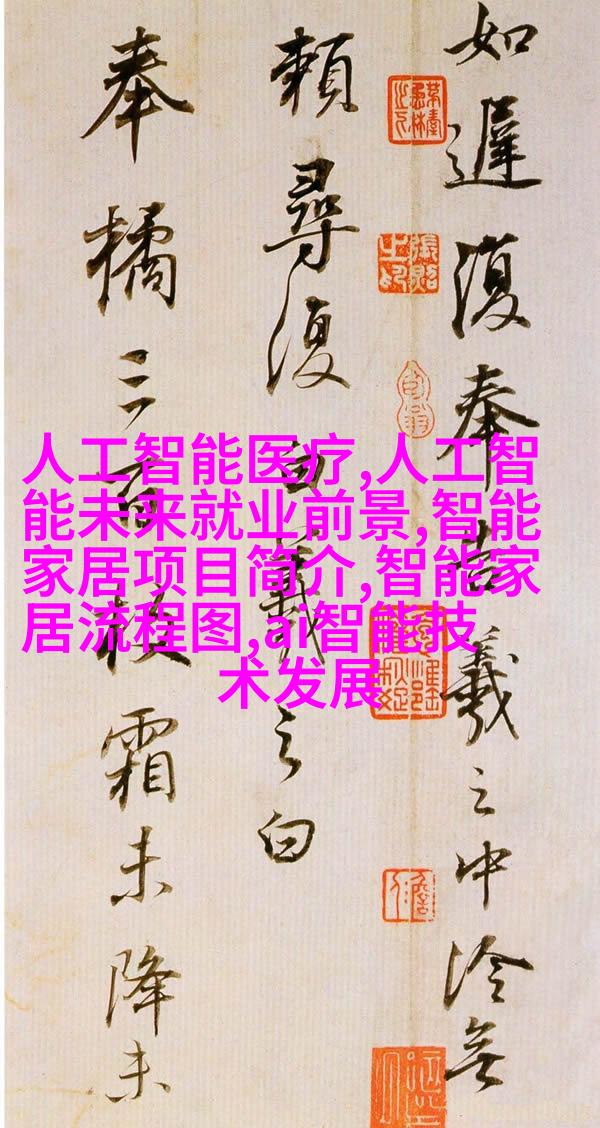 如遲復奉告羲之中冷無
賴尋復白羲之白
奉橘三百枚霜未降未
人工智能医疗,人工智
能未来就业前景,智能
家居项目简介,智能家
居流程图,ai智能技
术发展